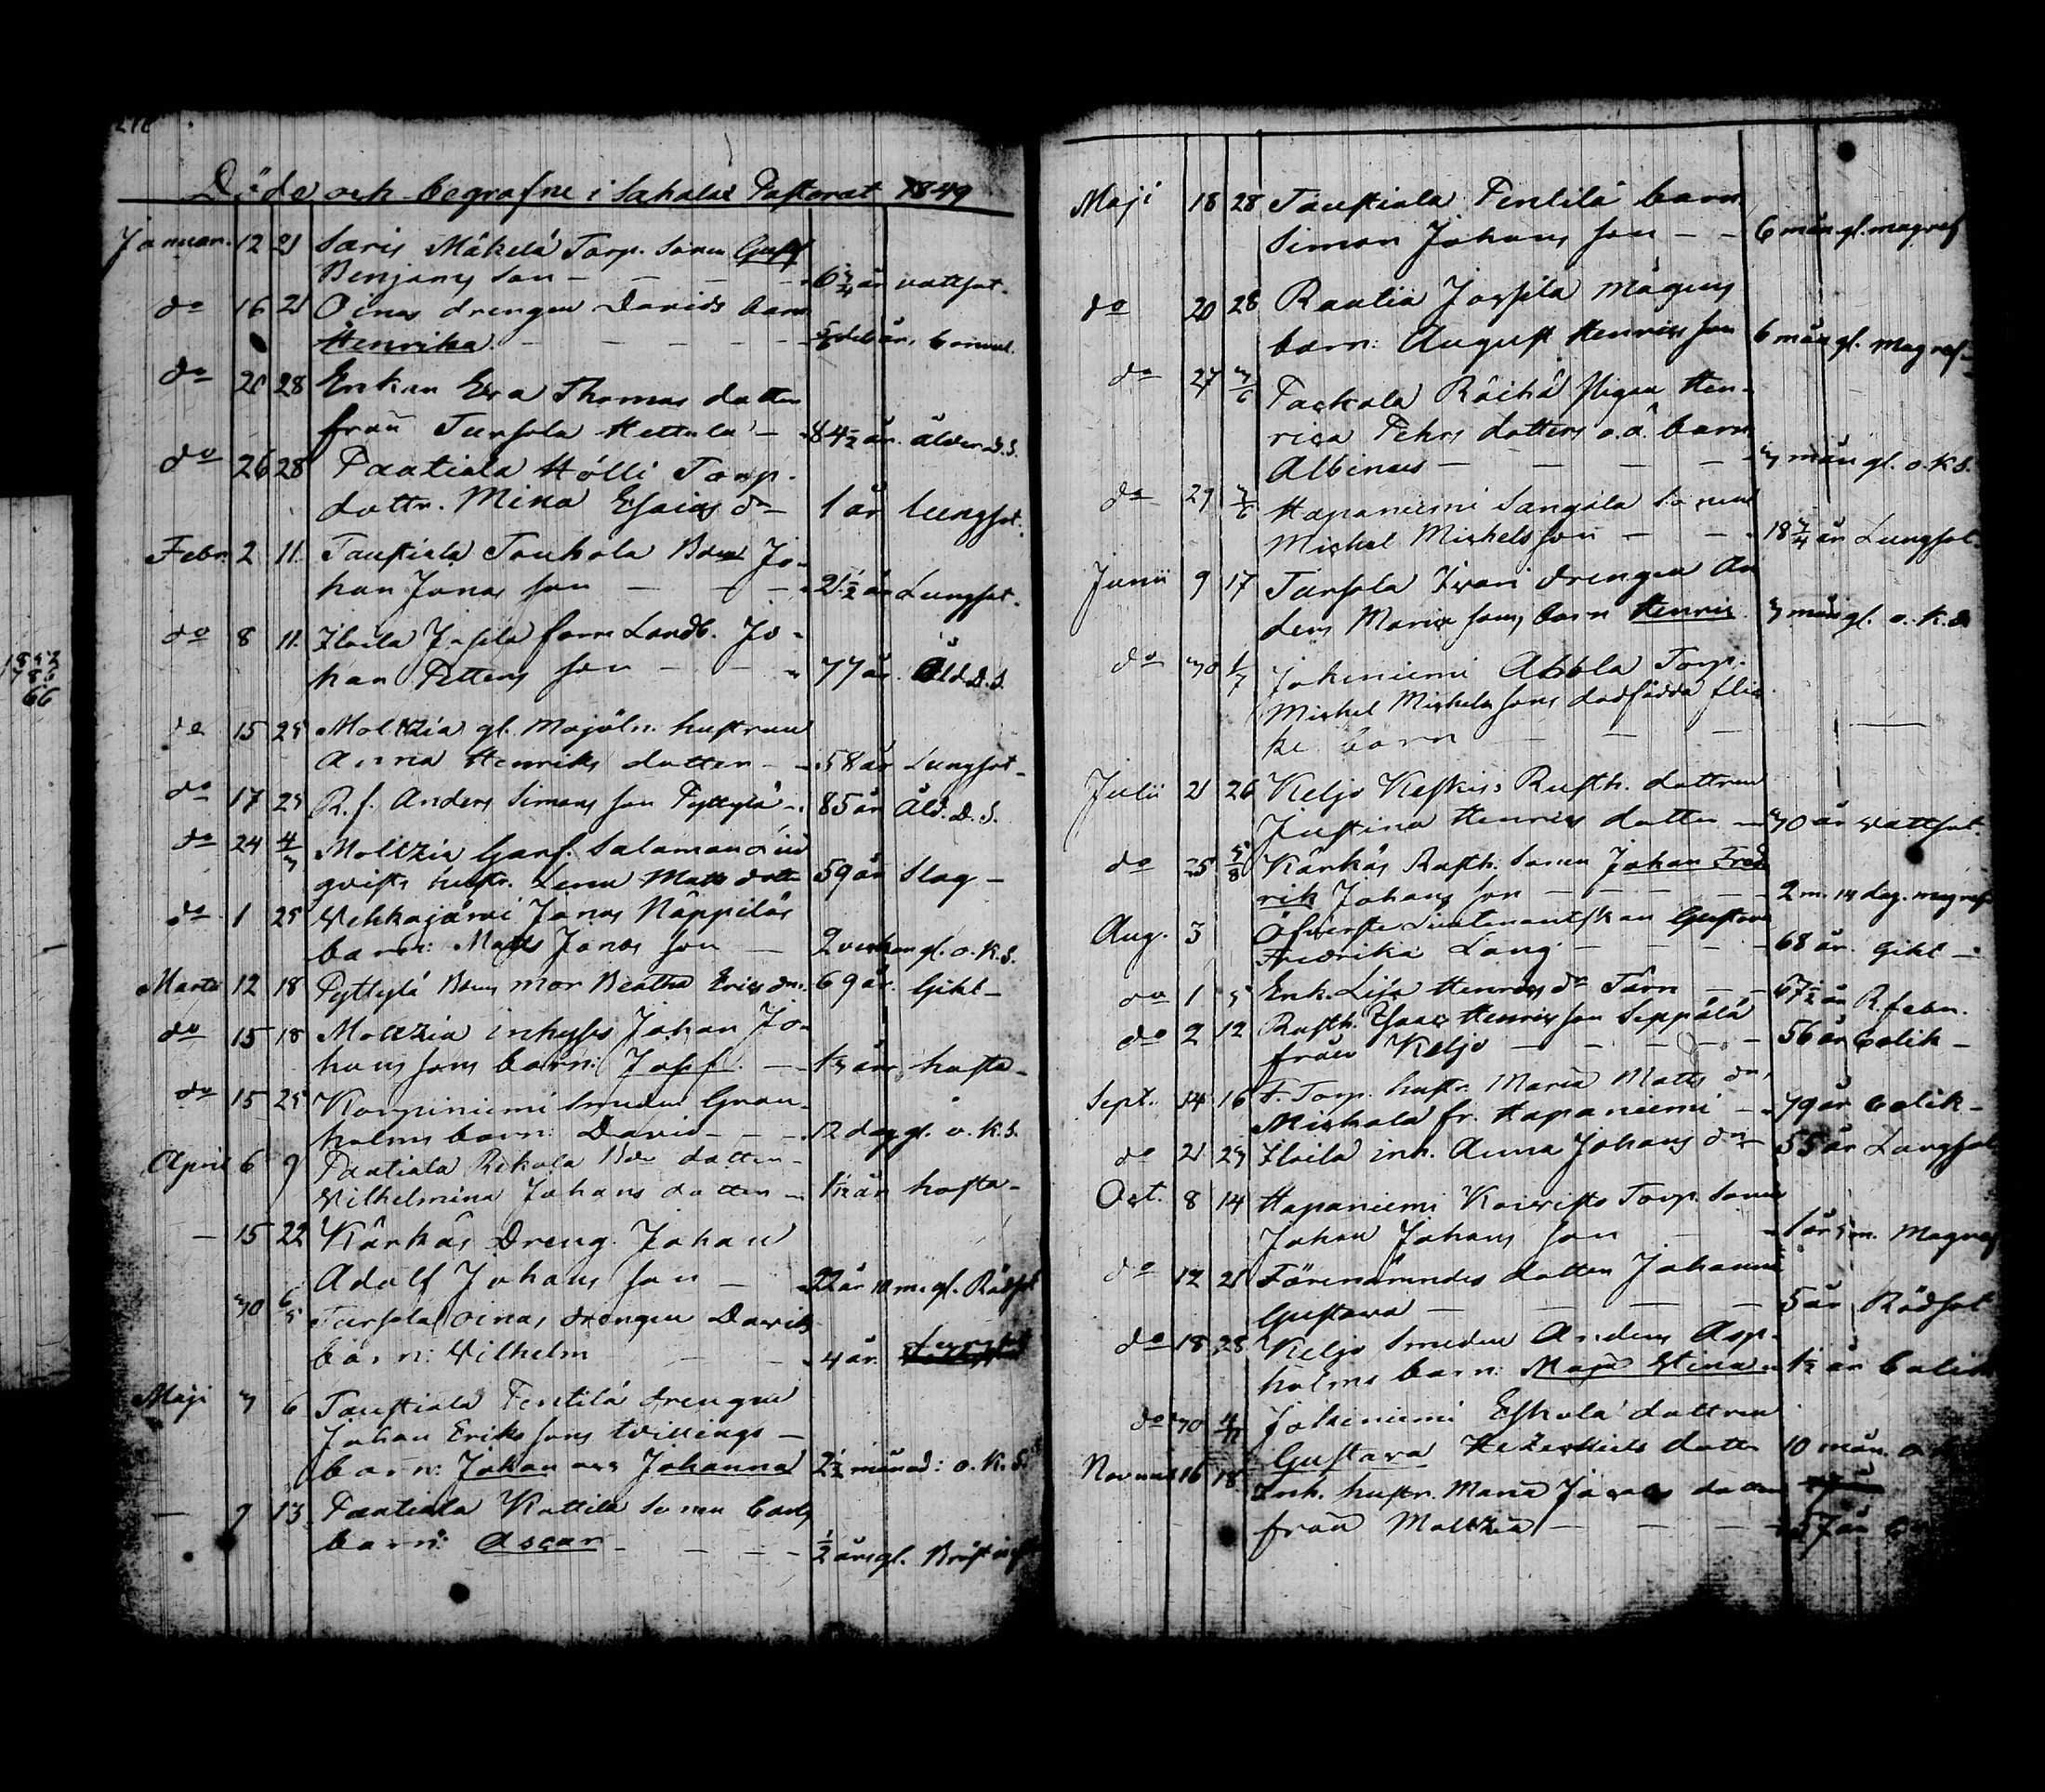 Döde och begrafne i Sahalax Pastorat 1849
Januar. 12 21 Saris Mäkelä Torp. Sonen Gust
Benjams son - - - 6 3/4 år vattsot.
do 16 21 Oinas drengen Davids barn
Henrika. - - - - år,
do 20 28 Enkan Eva Thomas dotter
från Tursola Hettula - 84 1/2 år. Ålder. D. S.
do 26 28 Paatiala Hölli Torp.
dottr. Mina Esaias dr 1 år lungsot.
Febr. 2 11. Taustiala Touhola Jo-
han Jonas son - - - 21 1/2 år Lungsot.
do 8 11. Iloila Jussila Landb. Jo-
han Petters son - - 77 år. Åld. D. S.
do 15 25 Moltzia gl. Mojöln. hustrun
Anna Henriks dotter - - 58 år Lungsot -
do 17 25 R. f. Anders Simons son Pyttylä - 85 år Åld. D. S.
do 24 4/3 Moltzia Garf. Salamon
qvists hustr. Lena Matts dotter 59 år Slag -
do 1 25 Vehkajärvi Jonas Näppiläs
barn: Matts Jonas son - 2 veckor gl. o. K. S.
Martii 12 18 Pyttylä mor Beatha Erics dr. 69 år. Gikt -
do 15 18 Moltzia inhyses Johan Jo-
hans sons barn: Josef. - - år hosta -
do 15 25 Korpiniemi Smeden Gran-
holms barn: David - - - 12 dag. gl. o. K. S.
April 6 9 Paatiala Rekola dotter -
Vilhelmina Johans dotter - år hosta -
- 15 22 Kärkäs Dreng. Johan
Adolf Johans son - 22 år 10 m. gl. Rödsot
30 6/5 Tursola Oinas drengen Davids
barn: Vilhelm - - 4 år. Lungsot
Maji 3 6 Taustiala Pentilä drengen
Johan Eriks sons tvillings -
barn: Johan och Johanna 2 1/2 månad: o. K. S.
- 9 13. Paatiala Kottila Sonen Carls
barn: Oscar - - - - 1/2 års gl.
Maji 18 28 Taustiala Pentilä barn
Simon Johans son - - 6 mån gl. magref
do 20 28 Rautia Jussila mågens
barn: August Henrics son 6 mån gl. Magref -
do 27 3/6 Packola Räihä Pigan Hen-
rica Pehrs dotters o. ä. barn
Albinus - - - - 3 mån gl. o. K. S.
do 29 3/6 Hapaniemi Sangila Sonen
Michel Michels son - - - 18 3/4 år Lungsot.
Junii 9 17 Tursola drengen An
ders sons barn Henric 3 mån gl. o. K. S.
do 30 1/7 Jokiniemi Torp.
Michel Michels sons dödfödda flic
ke barn - - -
Julii 21 26 Keljo Keskis Rusth. dottren
Justina Henrics dotter - 30 år vattsot.
do 25 5/8 Kärkäs Rusth. Sonen Johan Fred
rik Johans son - - - - 2 m. 14 dag. magref
Aug. 3 Öfverste Lieutenantskan Gustava
Fredrika Lang - - - - 68 år. Gikt -
do 1 5 Enk. Lisa Henrics dr Tärn - - 67 1/2 år R. feber.
do 2 12 Rusth. Isaac Henrics son Seppälä
från Keljo - - - - - 56 år Colik -
Sept. 14 16 F. Torp. hustr. Maria Matts dr,
Mickola fr. Hapaniemi - - 79 år Colik -
do 21 23 Iloila inh. Anna Johans dr - 55 år Lungsot
Oct. 8 14 Hapaniemi Koivisto Torp. Sonen
Johan Johans son - 1 år 5 m. Magref
do 12 21 Förenämndes dotter Johanna
Gustava - - - - 5 år Rödsot
do 18 28 Keljo Smeden Anders Asp-
holms barn: Maja Stina - år Colik
do 30 4/11 Jokiniemi Eskola dottren
Gustava Hezekiels dotter 10 mån.
November 16 18 Inh. hustr. Maria Jacobs dotter
från Moltzia - - - 57 år